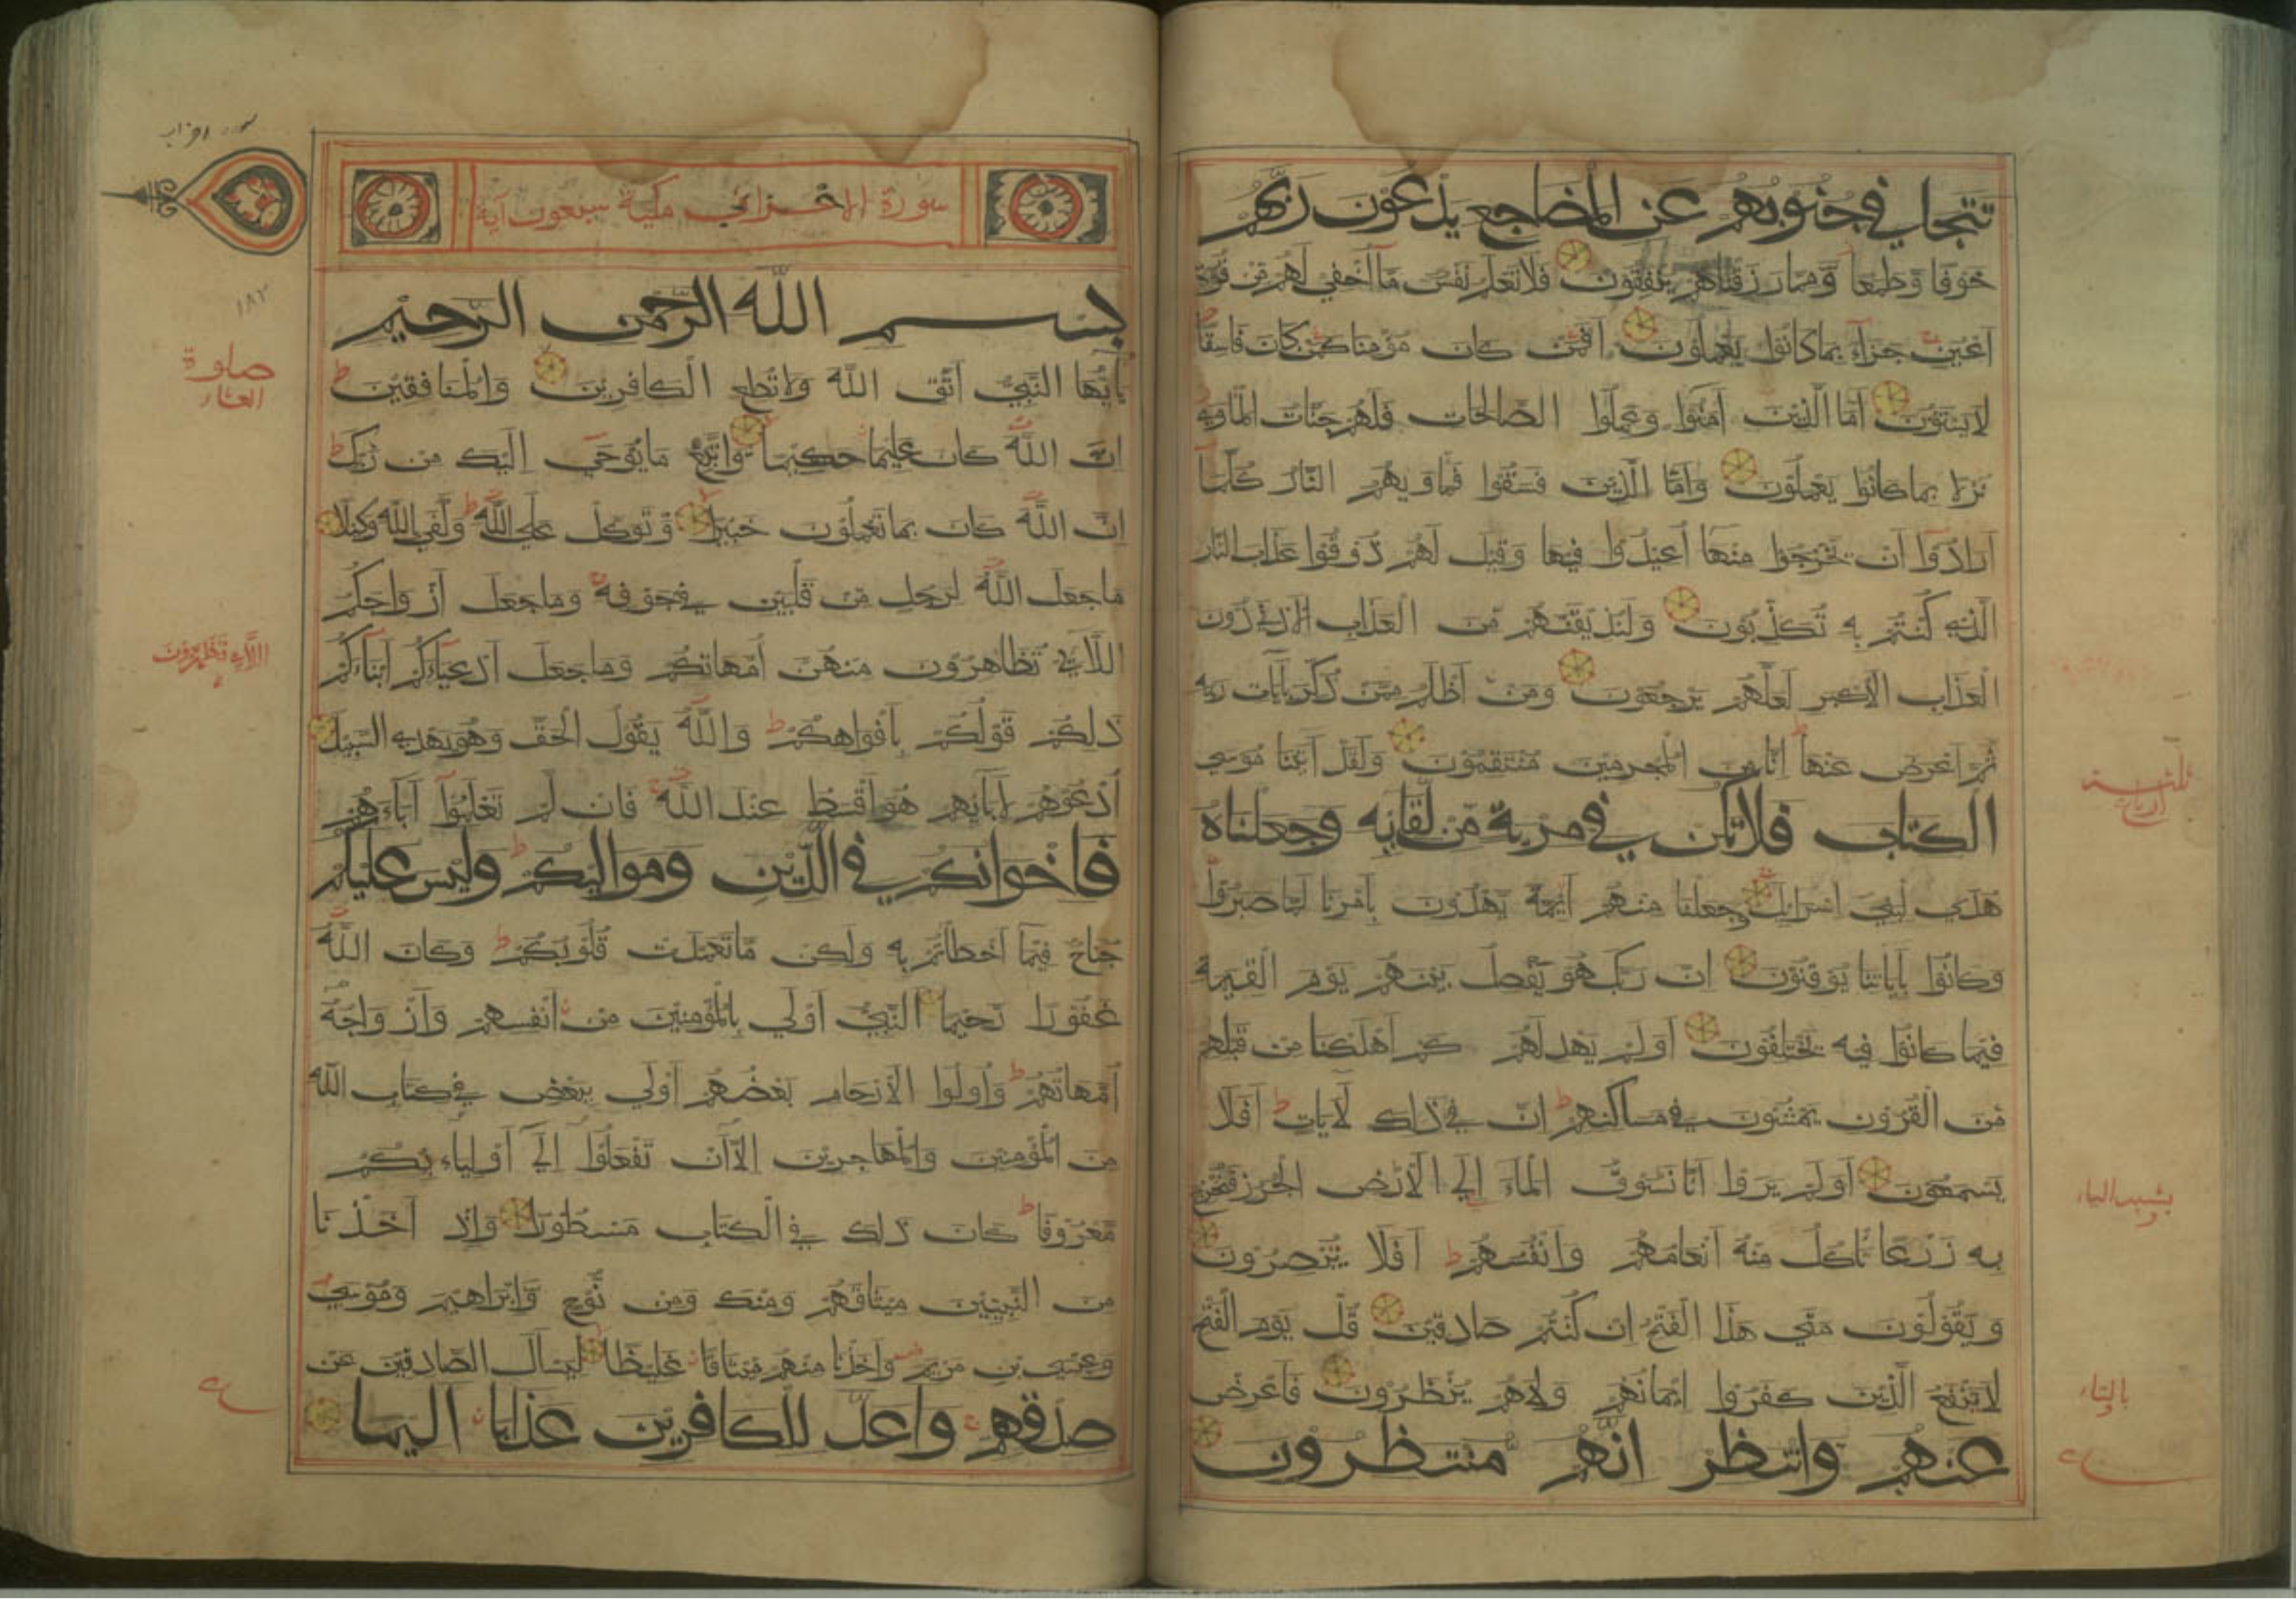 تتجافي جنوبهم عن المضاجع يدعون ربهم
خوفا وطمعا ومما رزقناهم ينفقون فلا تعلم نفس ما اخفي لهم من قرة
اعين جزاء بما كانوا يعملون افمن كان مؤمنا كمن كان فاسقا
لا يستوون اما الذين آمنوا وعملوا الصالحات فلهم جنات الماوي
نزلا بما كانوا يعملون واما الذين فسقوا فماويهم النار كلما
ارادوا ان يخرجوا منها اعيدوا فيها وقيل لهم ذوقوا عذاب النار
الذي كنتم به تكذبون ولنذيقنهم من العذاب الادني دون
العذاب الاكبر لعلهم يرجعون ومن اظلم ممن ذكر بآيات ربه
ثم اعرض عنها انا من المجرمين منتقمون ولقد آتينا موسي
الكتاب فلا تكن في مرية من لقائه وجعلناه
هدي لبني اسرائيل وجعلنا منهم ائمة يهدون بامرنا لما صبروا
وكانوا بآياتنا يوقنون ان ربك هو يفصل بينهم يوم القيمة
فيما كانوا فيه يختلفون اولم يهد لهم كم اهلكنا من قبلهم
من القرون يمشون في مساكنهم ان في ذلك لآيات افلا
يسمعون اولم يروا انا نسوق الماء الي الارض الجرز فنخرج
به زرعا تاكل منه انعامهم وانفسهم افلا يبصرون
ويقولون متي هذا الفتح ان كنتم صادقين قل يوم الفتح
لا ينفع الذين كفروا ايمانهم ولا هم ينظرون فاعرض
عنهم وانتظر انهم منتظرون
بالتاء
سورة احزاب
سورة الاحزاب مكية سبعون آية
١٨٢
بسم الله الرحمن الرحيم
يايها النبي اتق الله ولا تطع الكافرين والمنافقين
ان الله كان عليما حكيما واتبع ما يوحي اليك من ربك
ان الله كان بما تعملون خبيرا وتوكل علي الله وكفي بالله وكيلا
ما جعل الله لرجل من قلبين في جوفه وما جعل ازواجكم
اللائي تظاهرون منهن امهاتكم وما جعل ادعياءكم ابناءكم
ذلكم قولكم بافواهكم والله يقول الحق وهو يهدي السبيل
ادعوهم لآبائهم هو اقسط عند الله فان لم تعلموا آباءهم
فاخوانكم في الدين ومواليكم وليس عليكم
جناح فيما اخطاتم به ولكن ما تعمدت قلوبكم وكان الله
غفورا رحيما النبي اولي بالمؤمنين من انفسهم وازواجه
امهاتهم واولوا الارحام بعضهم اولي ببعض في كتاب الله
من المؤمنين والمهاجرين الا ان تفعلوا الي اولياءكم
معروفا كان ذلك في الكتاب مسطورا واذ اخذنا
من النبيين ميثاقهم ومنك ومن نوح وابراهيم وموسي
وعيسي بن مريم واخذنا منهم ميثاقا غليظا ليسأل الصادقين عن
صدقهم واعد للكافرين عذابا اليما